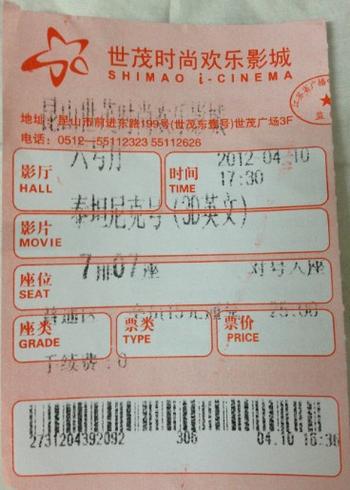 世茂时尚欢乐影城
SHIMAO i-CINEMA
昆山世茂时尚欢乐影城
地址:昆山市前进东路199号(世茂东壹号)世茂广场3F
电话：0512—55112323 55112626
影厅 六号厅 时间 2012-04-10
HALL TIME 17:30
泰坦尼克号（3D英文）
影片
MOVIE
7排07座 对号入座
座位
SEAT
普通区 25.00
座类 票类 票价
GRADE TYPE PRICE
手续费:0
2731204392092 306 04.10 16:30